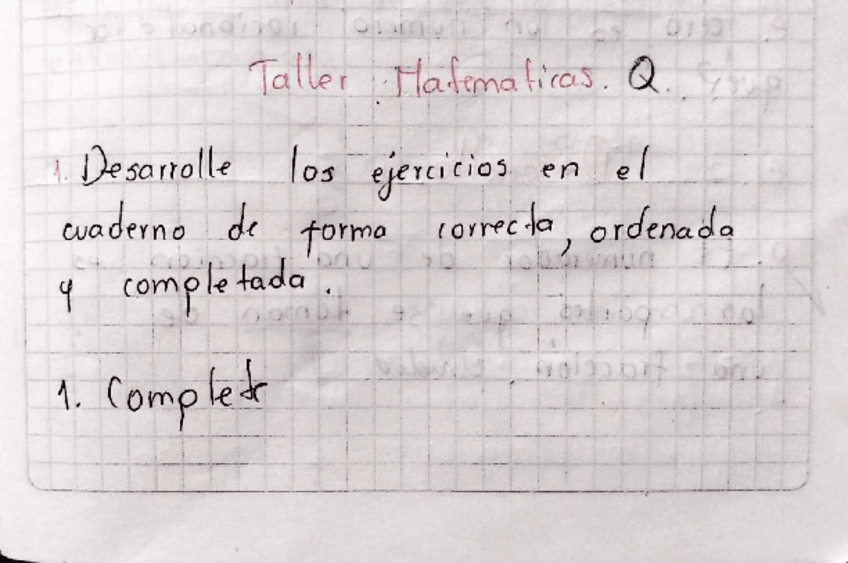 Taller Matematicas. Q.
1. Desarrolle los ejercicios en el
cuaderno de forma correcta, ordenada
y completada.
1. Complete